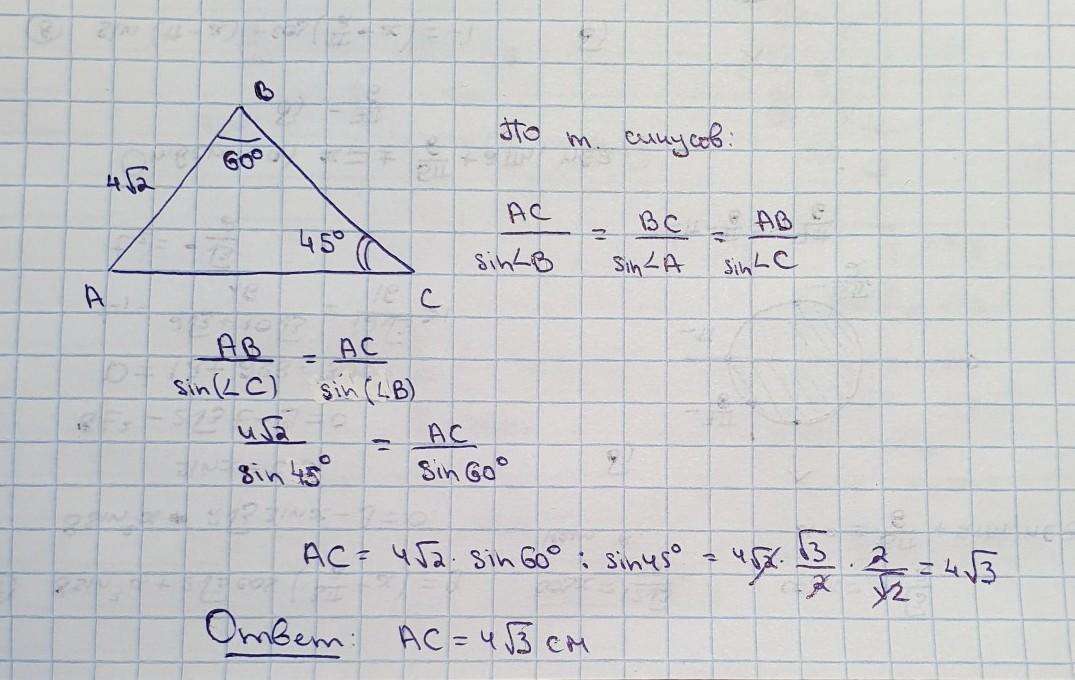 B
60°
4√2
45°
A
C
По т. синусов:
AC/sin∠B = BC/sin∠A = AB/sin∠C
AB/sin(∠C) = AC/sin(∠B)
4√2/sin 45° = AC/sin 60°
AC = 4√2 · sin 60° : sin 45° = 4√2 · √3/2 · 2/√2 = 4√3
Ответ: AC = 4√3 см